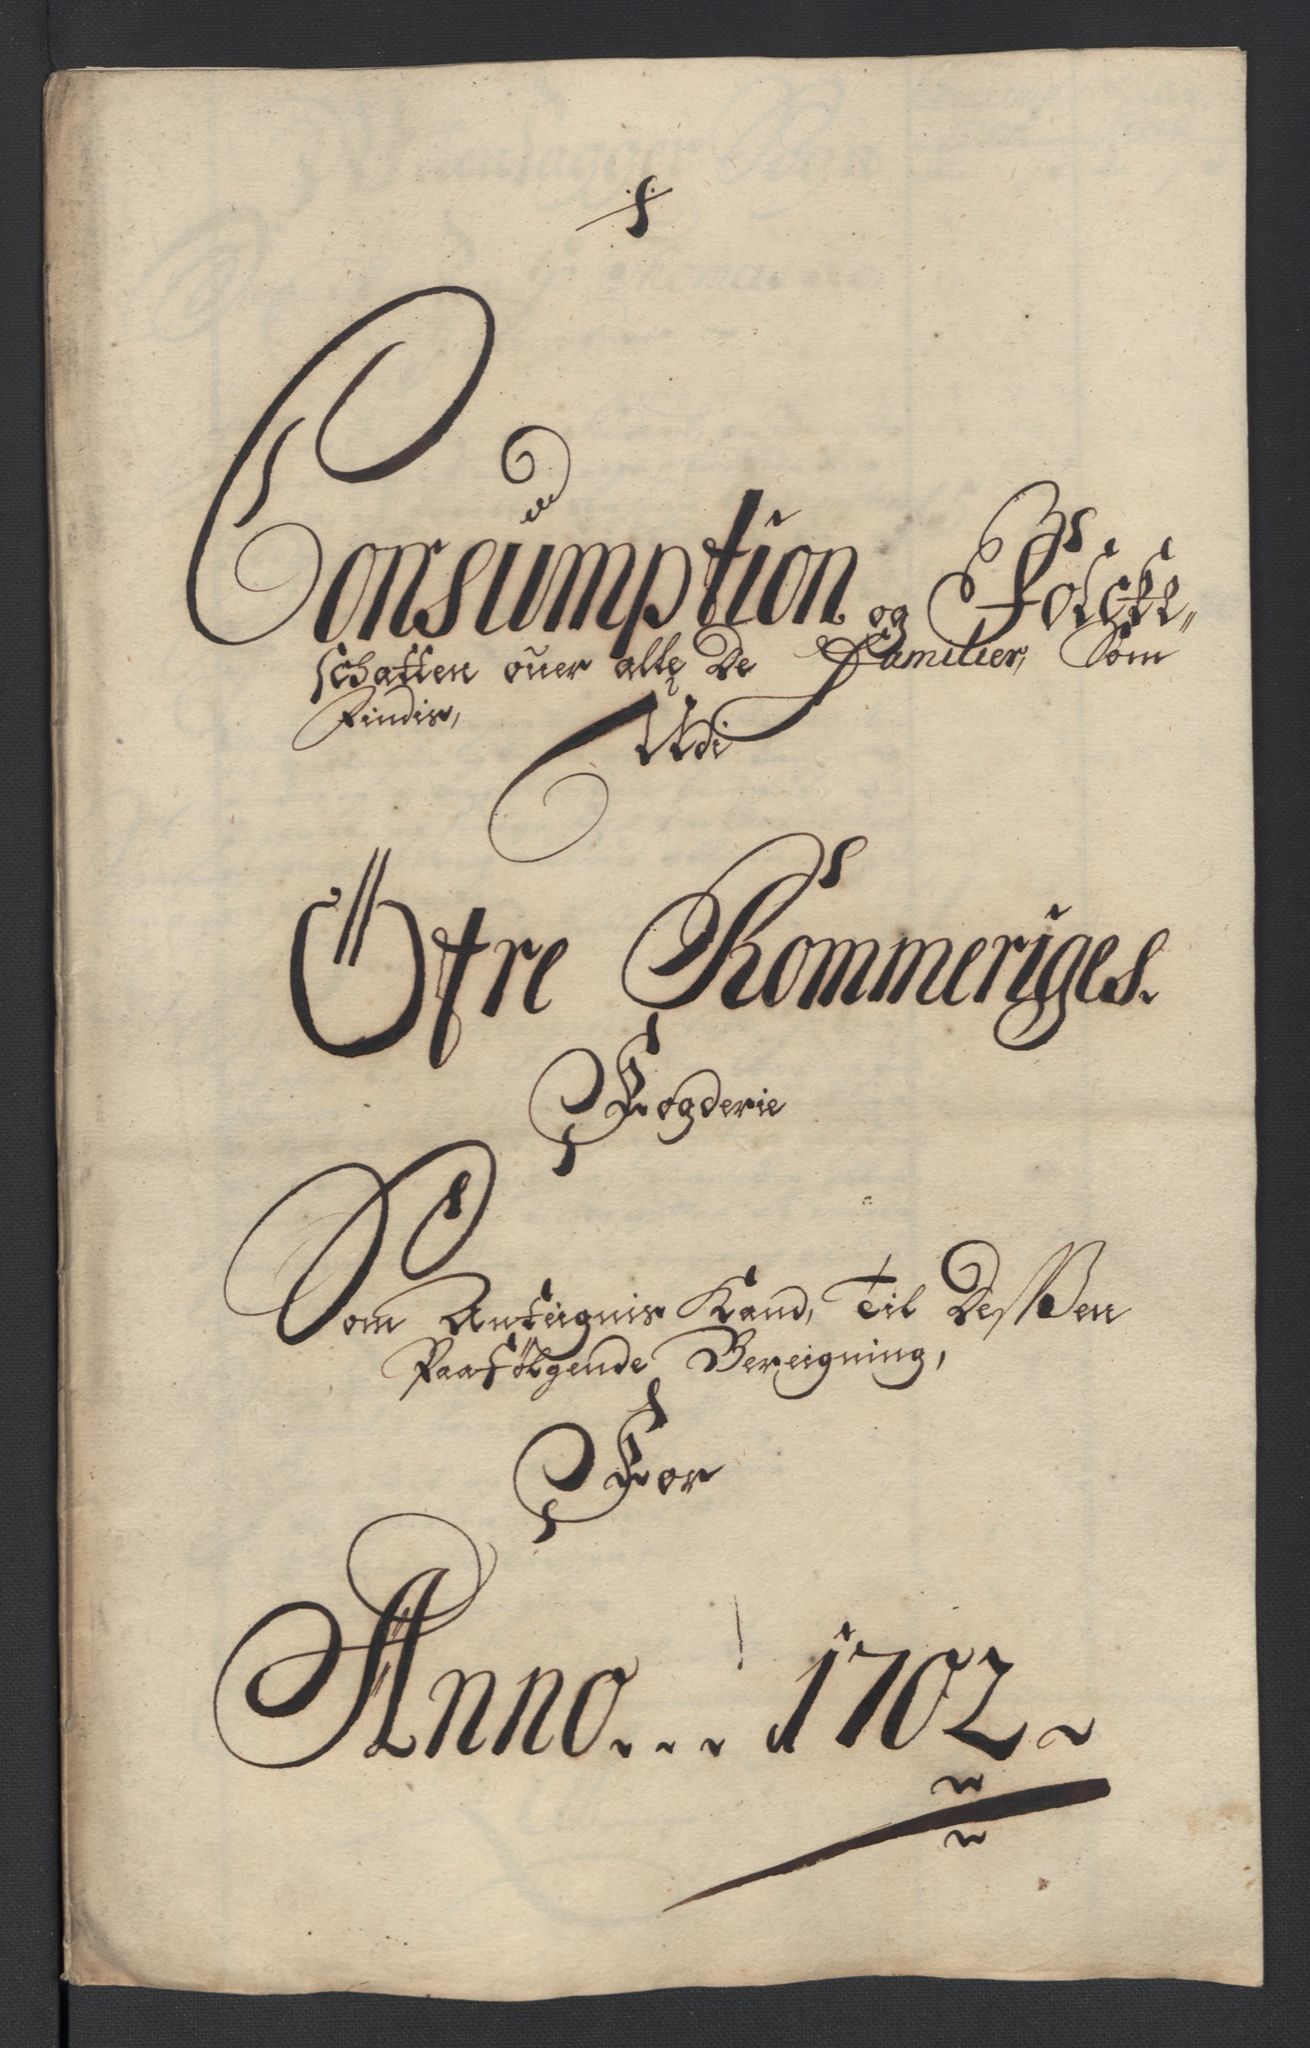 Consumption og Folcke-
schatten ofuer alle De Familier, Som
Findis,
Udi
Öfre Rommeriges.
Fogderie
Som Anteignis Kand, Til Dessen
Paafölgende Bereigning,
For
Anno... 1702.